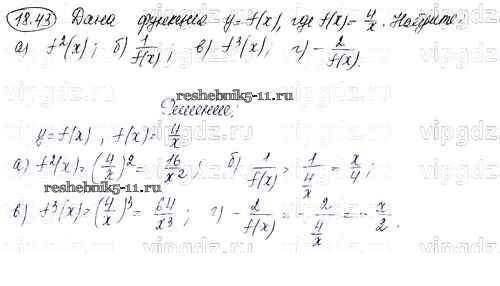 18.43 Дана функция y=f(x), где f(x)=4/x. Найдите:
а) f²(x); б) 1/f(x); в) f³(x); г) -2/f(x).
reshebnik5-11.ru
Решение:
y=f(x), f(x)=4/x
vipgdz.com
а) f²(x)=(4/x)²=16/x²; б) 1/f(x)=1/(4/x)=x/4;
reshebnik5-11.ru
в) f³(x)=(4/x)³=64/x³; г) -2/f(x)=-2/(4/x)=-x/2.